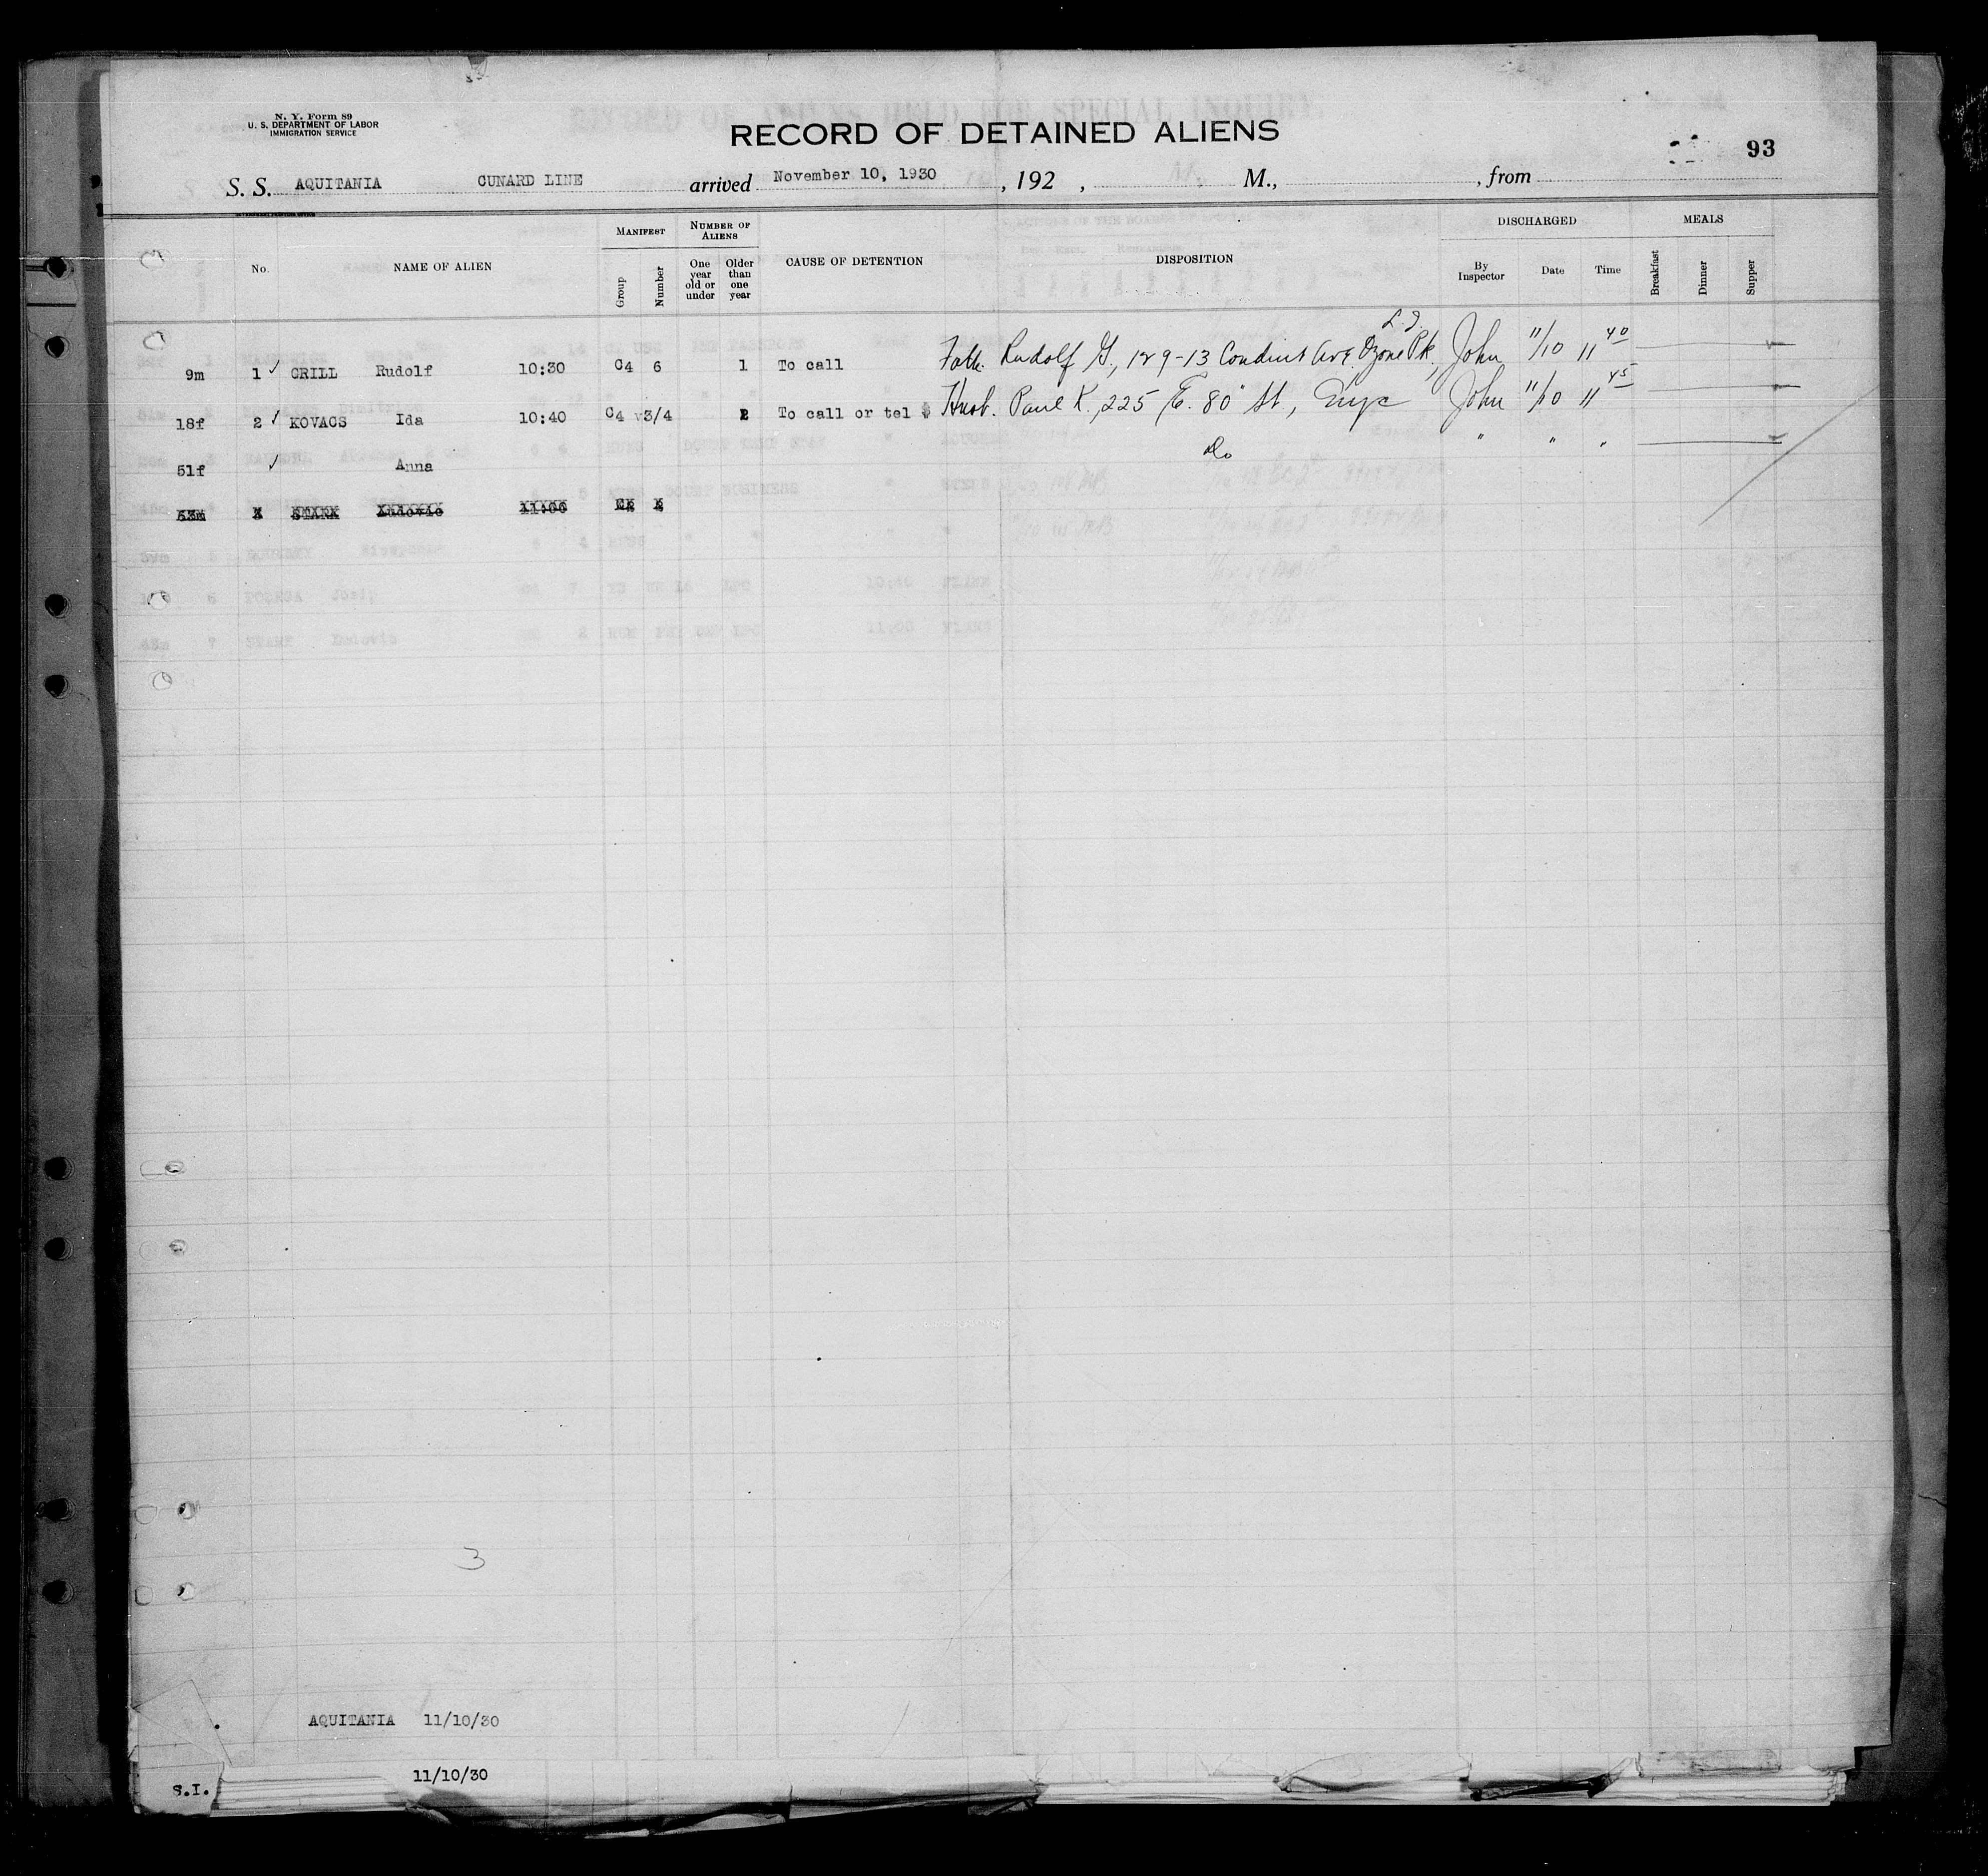 N. Y. Form 89
U. S. DEPARTMENT OF LABOR
IMMIGRATION SERVICE
RECORD OF DETAINED ALIENS
93
S. S. AQUITANIA CUNARD LINE arrived November 10, 1930, 192 , M., , from
MANIFEST NUMBER OF ALIENS DISCHARGED MEALS
No. NAME OF ALIEN Group Number One year old or under Older than one year CAUSE OF DETENTION DISPOSITION By Inspector Date Time Breakfast Dinner Supper
L. I.
9m 1 GRILL Rudolf 10:30 C4 6 1 To call Fath. Rudolf G., 129-13 Conduit Ave. Ozone Pk, John 11/10 11 40
18f 2 KOVACS Ida 10:40 C4 3/4 2 To call or tel $ Husb. Paul K., 225 E. 80" St., NYC John 11/10 11 45
51f Anna Do " " "
STARK Ludovic 11:00
3
AQUITANIA 11/10/30
S.I. 11/10/30